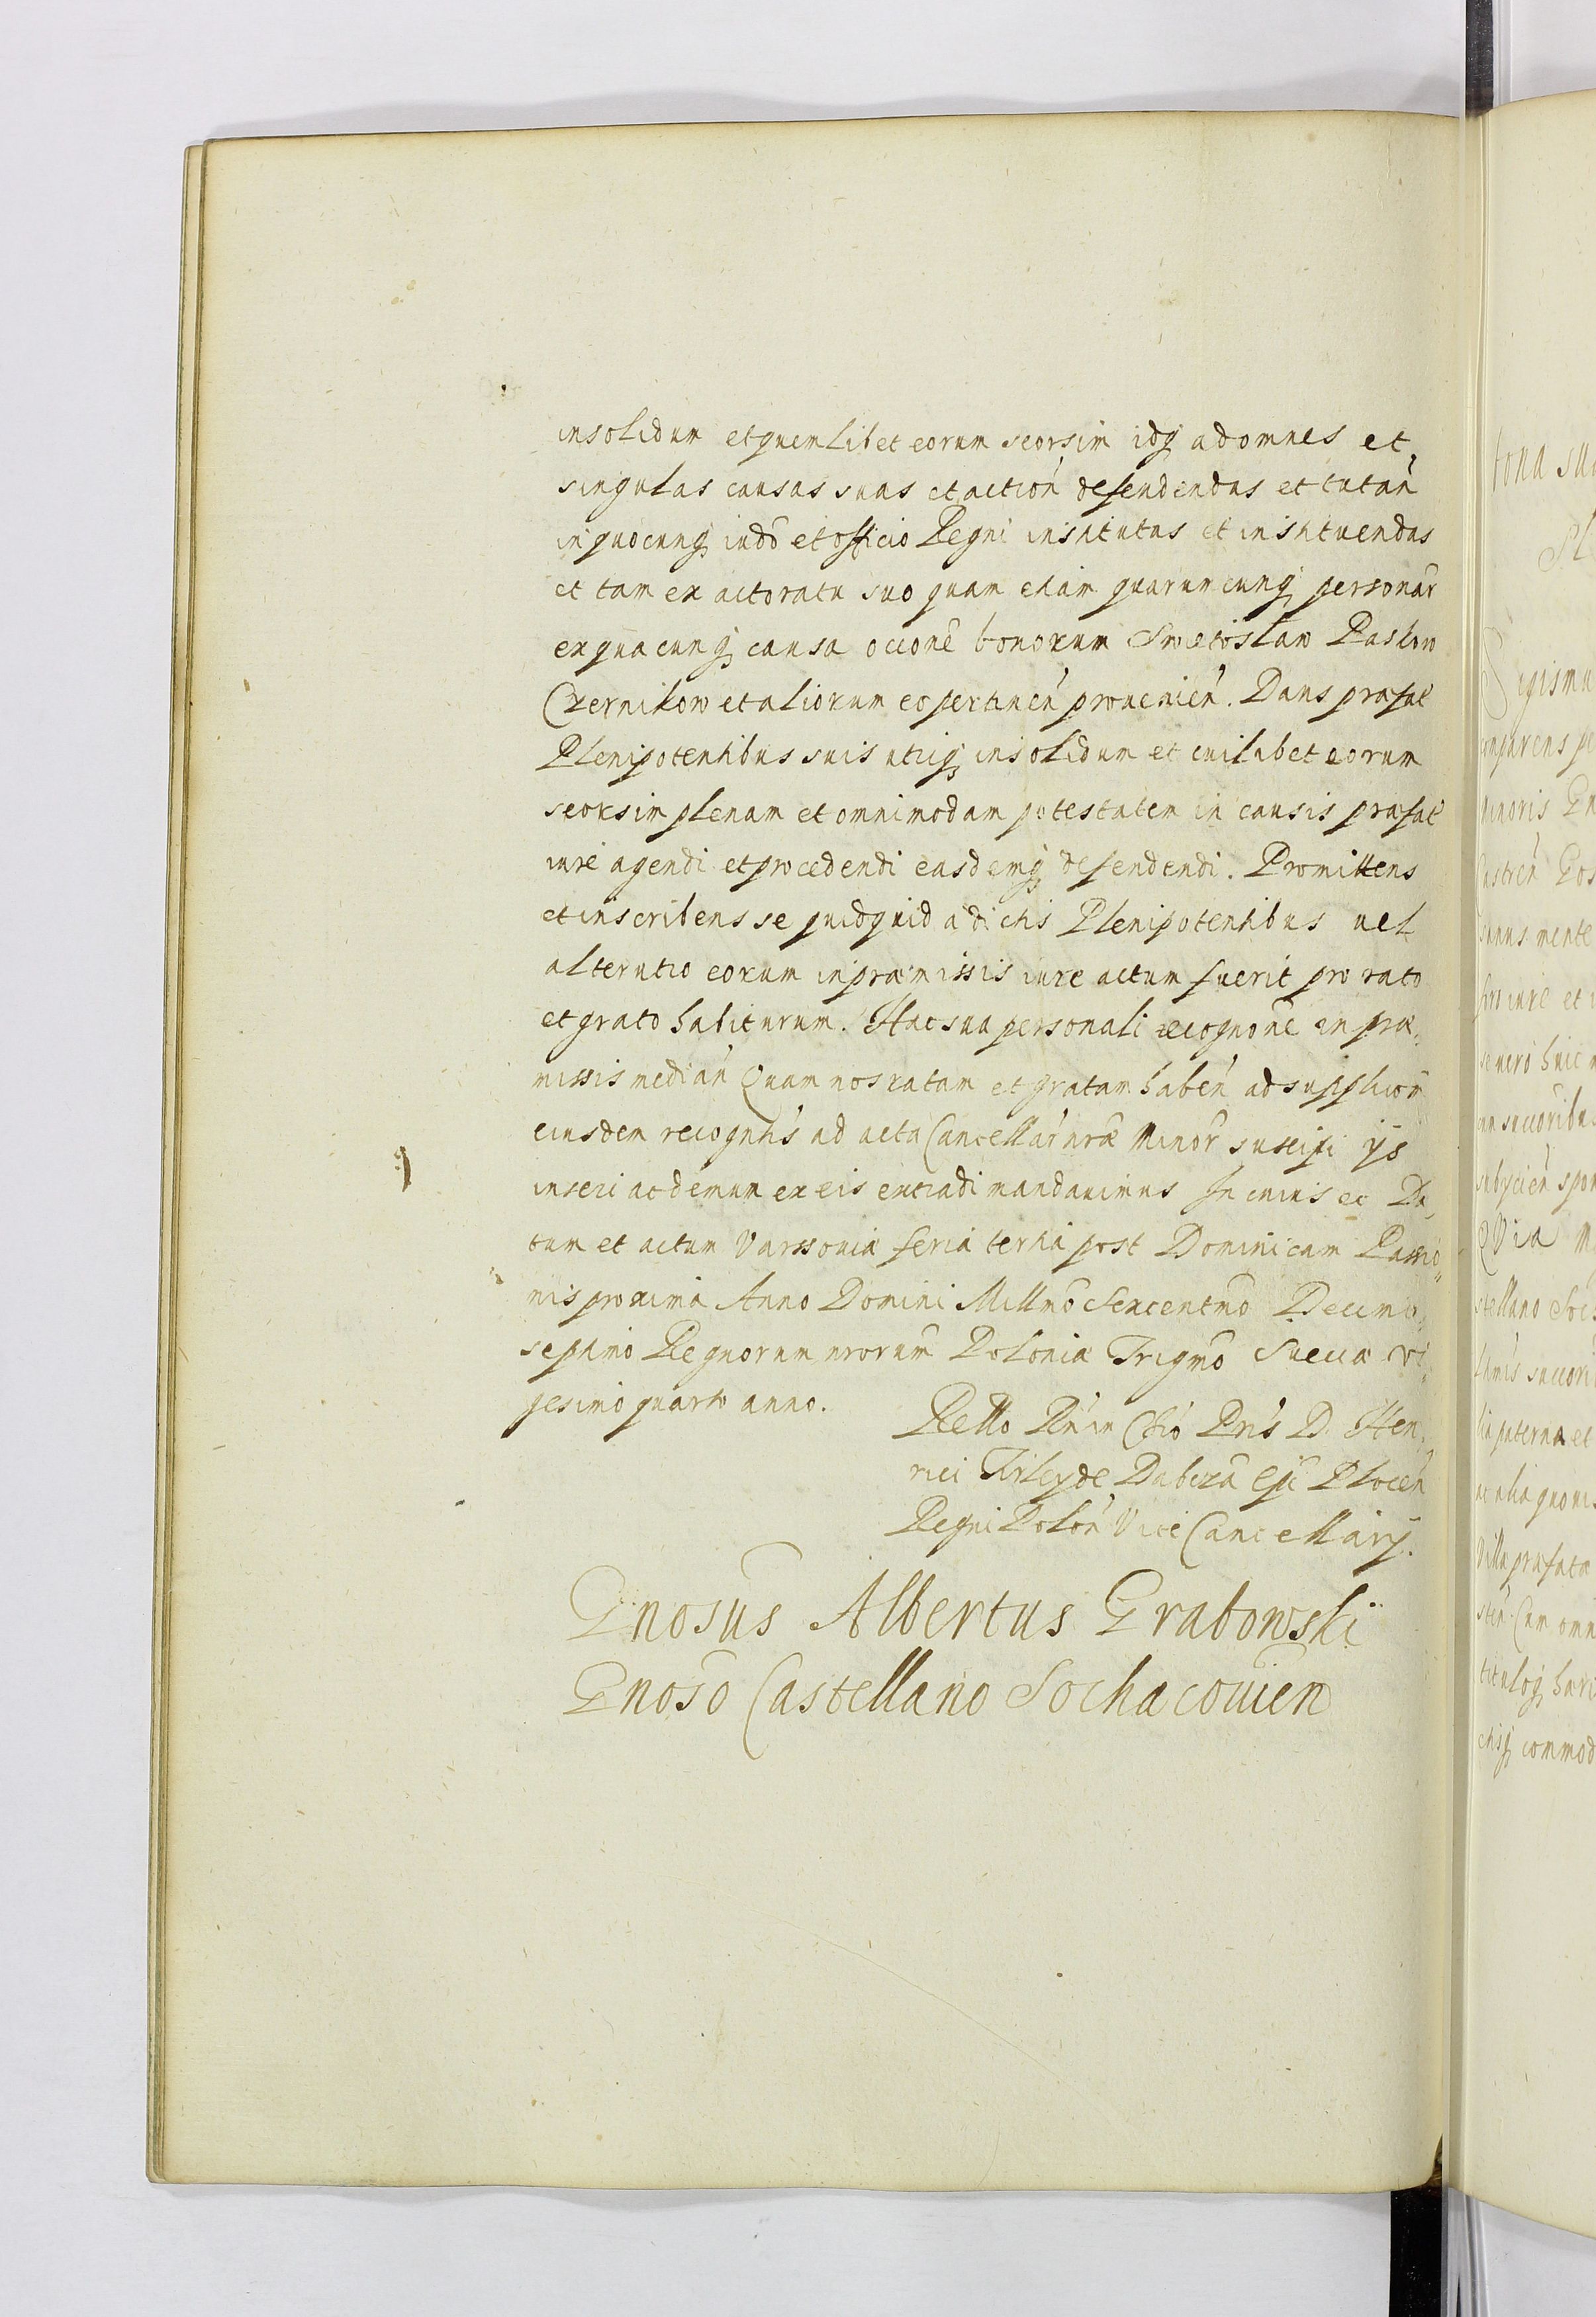 insolidum et quemlibet eorum seorsim idq ad omnes et
singulas causas suas et action defendendas et tutan
in quocunq iudo et officio Regni institutas et instituendas
et tam ex actoratu suo quam etiam quaruncunq personar
ex quacunq causa ocione bonorum Swietoslaw Paskow
Czernikow et aliorum eo pertinen prouenien. Dans præfat
Plenipotentibus suis utriq insolidum et cuilibet eorum
seorsim plenam et omnimodam potestatem in causis præfat
iure agendi et procedendi easdemq defendendi. Promittens
et inscribens se quidquid a dictis Plenipotentibus uel
alterutro eorum in præmissis iure actum fuerit pro rato
et grato habiturum. Hac sua personali recognone in præ,
missis median Quam nos ratam et gratam haben ad supplicon
eiusdem recogntis ad acta Cancellar nræ Minor suscipi ijs
inseri ac demum ex eis extradi mandauimus In cuius ec Da,
tum et actum Varssouiæ feria tertia post Dominicam Passio
nis proxima Anno Domini Millmo Sexcentmo Decimo
septimo Regnorum nrorum Poloniæ Trigmo Sueciæ vi
gesimo quarto anno.
Rello Rdn in Chro Pris D. Hen,
rici Firley de Dabrowica Epi Plocen
Regni Polon Vice Cancellarij.
Gnosus Albertus Grabowski
Gnoso Castellano Sochacouien
tona sua
Pl
Sigismu
mparens pe
minoris Gn
Castren Pos
sanus mente
pro iure et
se uero huic
an succoribu
subycien spon
QVia M
stellano Soc
timis succori
lia paterna et
ac alia quouis
Villa præfata
sten Cum omni
tituloq hære
ctisq commod